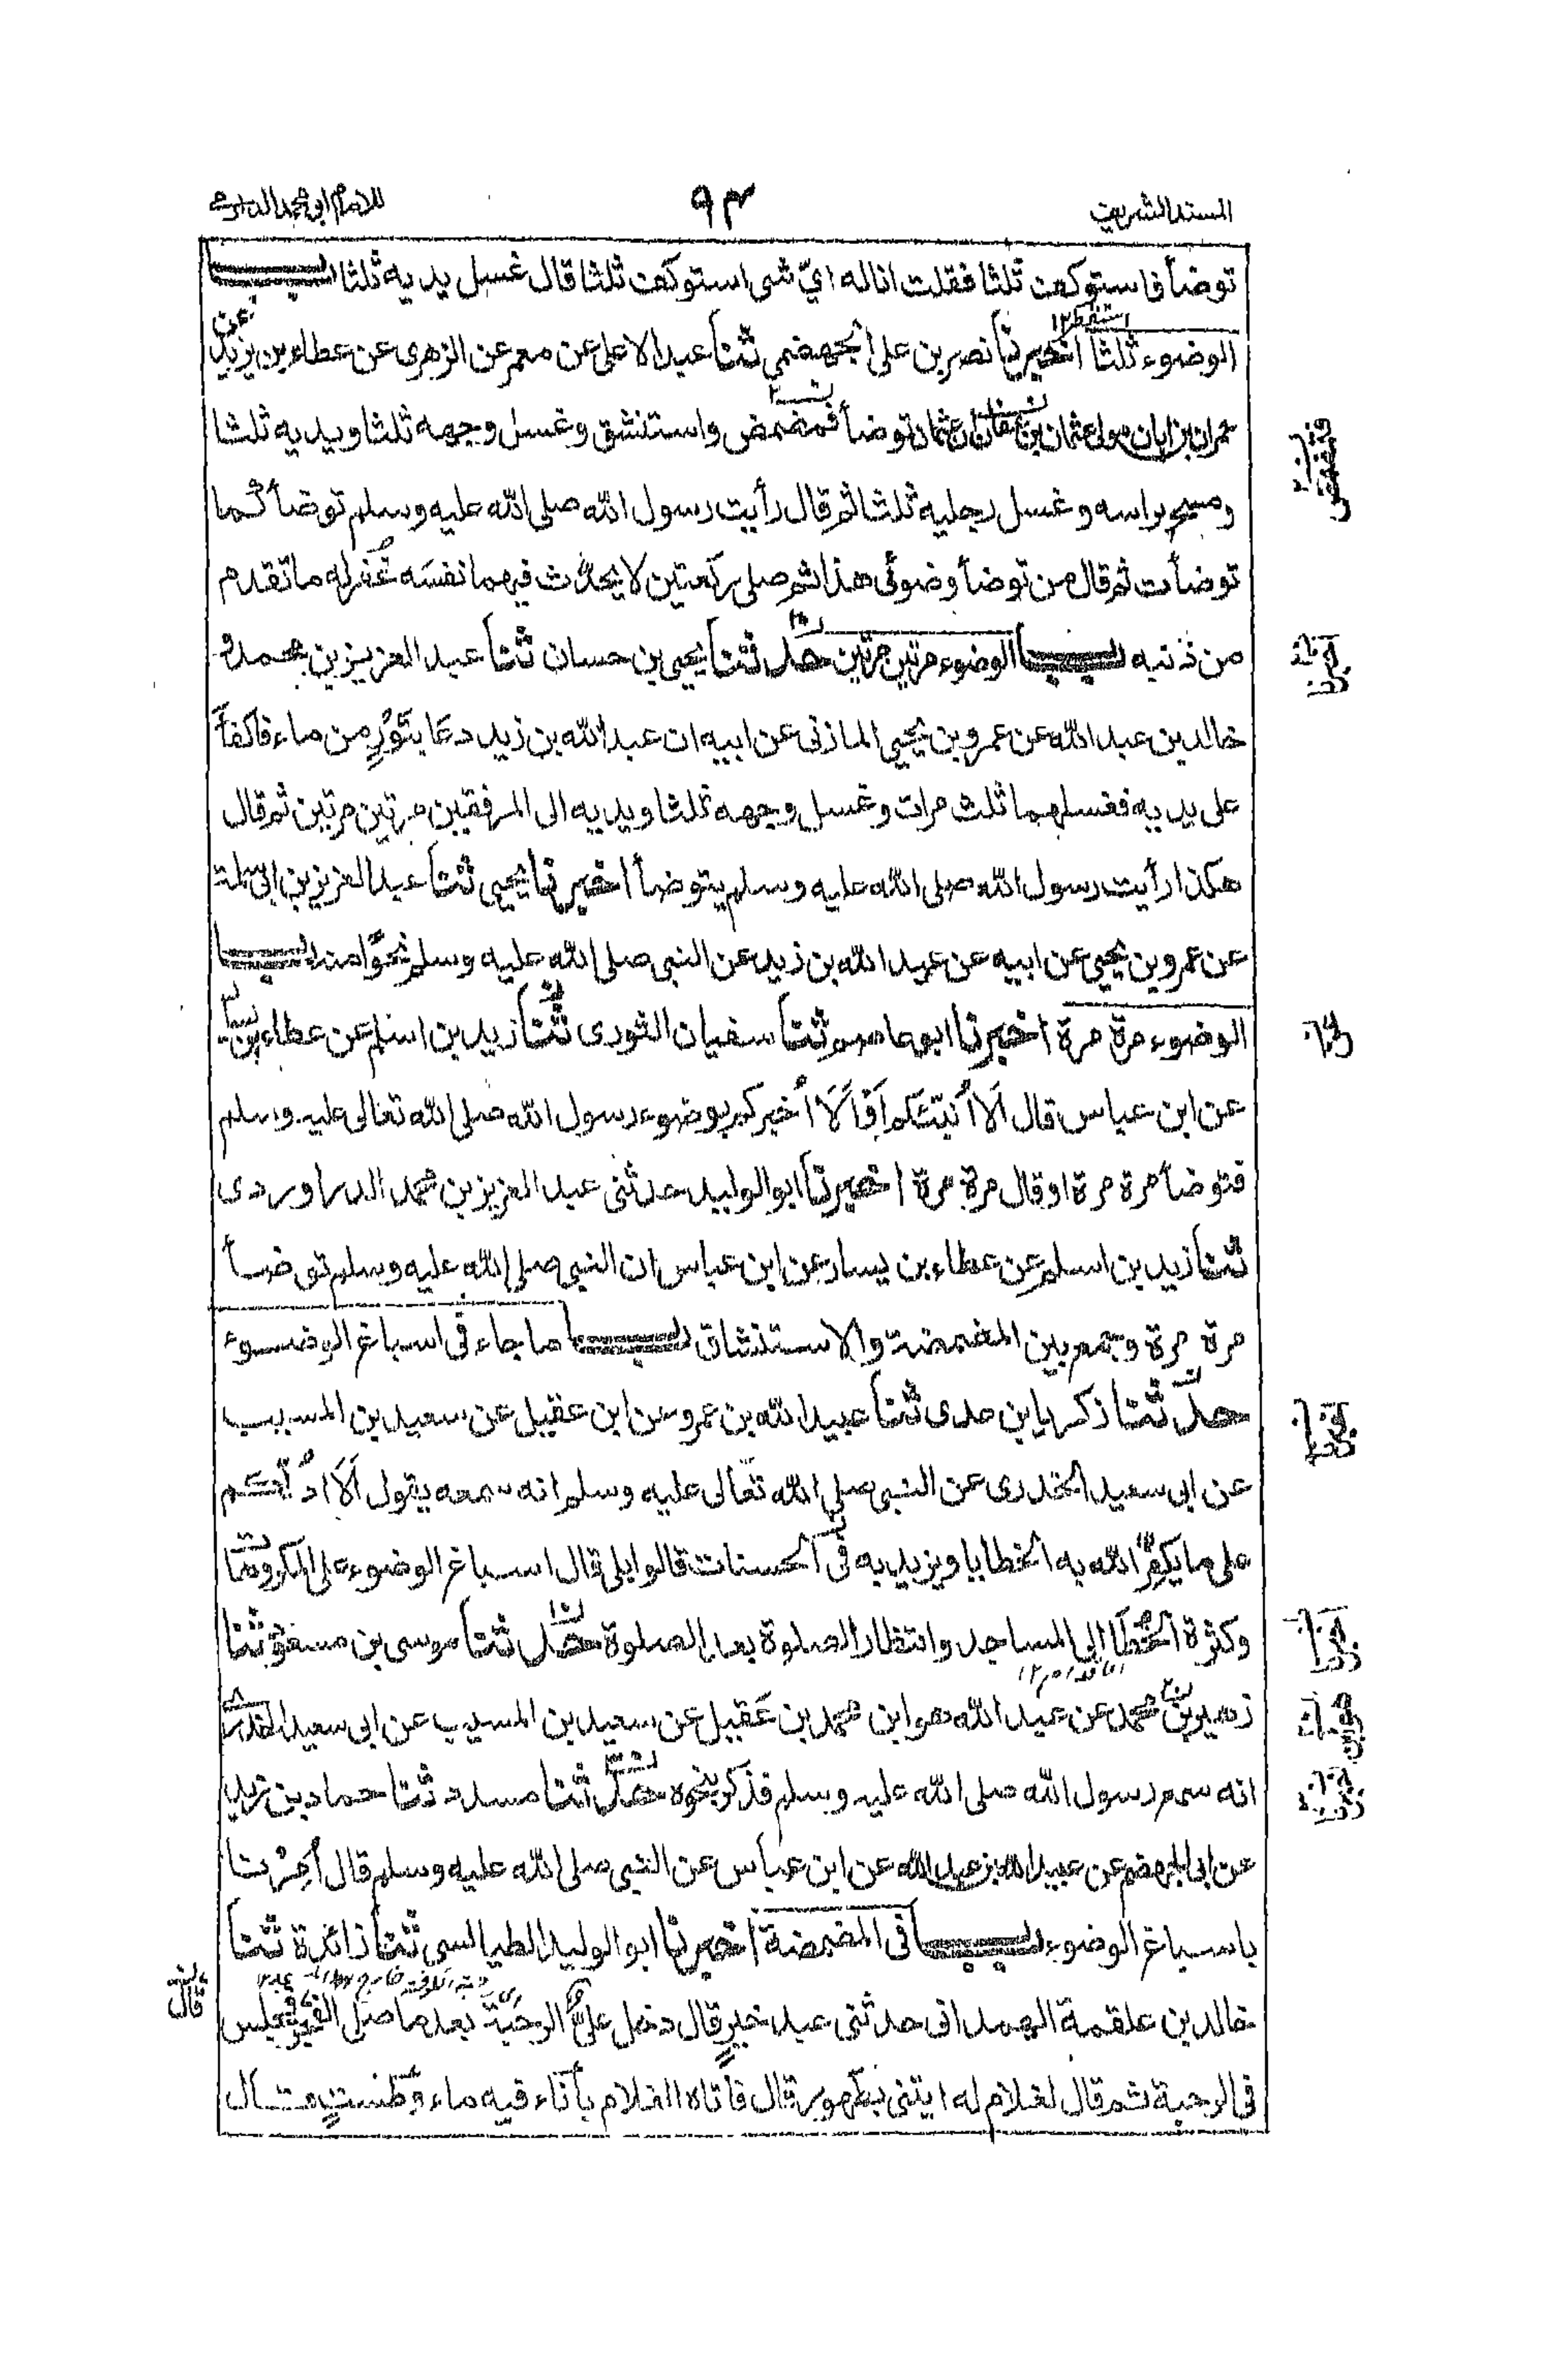 المسند الشريف
٩٣
للامام ابو محمد الدارمي
توضأ فاستوكف ثلثا فقلت اناله اىّ شى استوكف ثلثا قال غسل يديه ثلثا باب
استقط١٢
الوضوء ثلثا اخبرنا نصر بن على الجهضمى ثنا عبد الاعلى عن معمر عن الزهرى عن عطاء بن يزيد عن
حمران بن ابان مولى عثمان بن عفان ان عثمان توضأ فمضمض واستنشق وغسل وجهه ثلثا ويديه ثلثا
ومسح براسه وغسل رجليه ثلثا ثم قال رأيت رسول الله صلى الله عليه وسلم توضأ كما
توضأت ثم قال من توضأ وضوئى هذا ثم صلى ركعتين لا يحدّث فيهما نفسَه غُفر له ما تقدم
من ذنبه باب الوضوء مرتين مرتين حدّثنا يحيى بن حسان ثنا عبد العزيز بن محمد و
خالد بن عبد الله عن عمرو بن يحيى المازنى عن ابيه ان عبد الله بن زيد دعَا بتَوْرٍ من ماء فاكفأ
على يديه فغسلهما ثلث مرات وغسل وجهه ثلثا ويديه الى المرفقين مرتين مرتين ثم قال
هكذا رأيت رسول الله صلى الله عليه وسلم يتوضأ اخبرنا يحيى ثنا عبد العزيز بن ابى سلمة
عن عمرو بن يحيى عن ابيه عن عبد الله بن زيد عن النبى صلى الله عليه وسلم نحوًا منه باب
الوضوء مرة مرة اخبرنا ابو عاصم ثنا سفيان الثورى ثنا زيد بن اسلم عن عطاء بن يسار
عن ابن عباس قال اَلَا اُنَبّئكم اَوْ اَلَا اُخبركم بوضوء رسول الله صلى الله تعالى عليه وسلم
فتوضأ مرة مرة او قال مرة مرة اخبرنا ابو الوليد حدثنى عبد العزيز بن محمد الدراوردى
ثنا زيد بن اسلم عن عطاء بن يسار عن ابن عباس ان النبى صلى الله عليه وسلم توضأ
مرة مرة وجمع بين المضمضة والاستنشاق باب ما جاء فى اسباغ الوضوء
حدّثنا زكريا بن عدى ثنا عبيد الله بن عمرو عن ابن عقيل عن سعيد بن المسيب
عن ابى سعيد الخدرى عن النبى صلى الله تعالى عليه وسلم انه سمعه يقول اَلَا ادُلّكم
على ما يكفّر الله به الخطايا ويزيد به فى الحسنات قالوا بلى قال اسباغ الوضوء على المكروهات
وكثرة الخُطَا الى المساجد وانتظار الصلوة بعد الصلوة حدّثنا موسى بن مسعود ثنا
زهير بن محمد عن عبد الله هو ابن محمد بن عَقيل عن سعيد بن المسيب عن ابى سعيد الخدرى
انه سمع رسول الله صلى الله عليه وسلم فذكر بنحوه حدّثنا مسدد ثنا حماد بن زيد
عن ابى الجهضم عن عبيد الله بن عبد الله عن ابن عباس عن النبى صلى الله عليه وسلم قال أُمِرْنا
باسباغ الوضوء باب فى المضمضة اخبرنا ابو الوليد الطيالسى ثنا زائدة ثنا
خالد بن علقمة الهمدانى حدثنى عبد خيرٍ قال دخل علىٌّ الرحَبَة بعد ما صلى الفجر فجلس
فى الرحبة ثم قال لغلام له ايتنى بطَهور قال فاتاه الغلام بأناء فيه ماء وَطَستٍ قال
قال